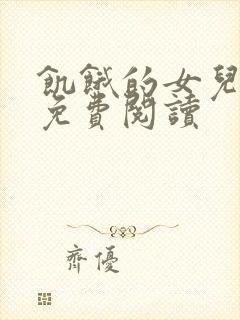 飢餓的女兒
免費閱讀
齊優